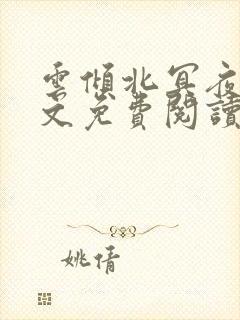 雲傾北冥夜
文免費閱讀
姚倩